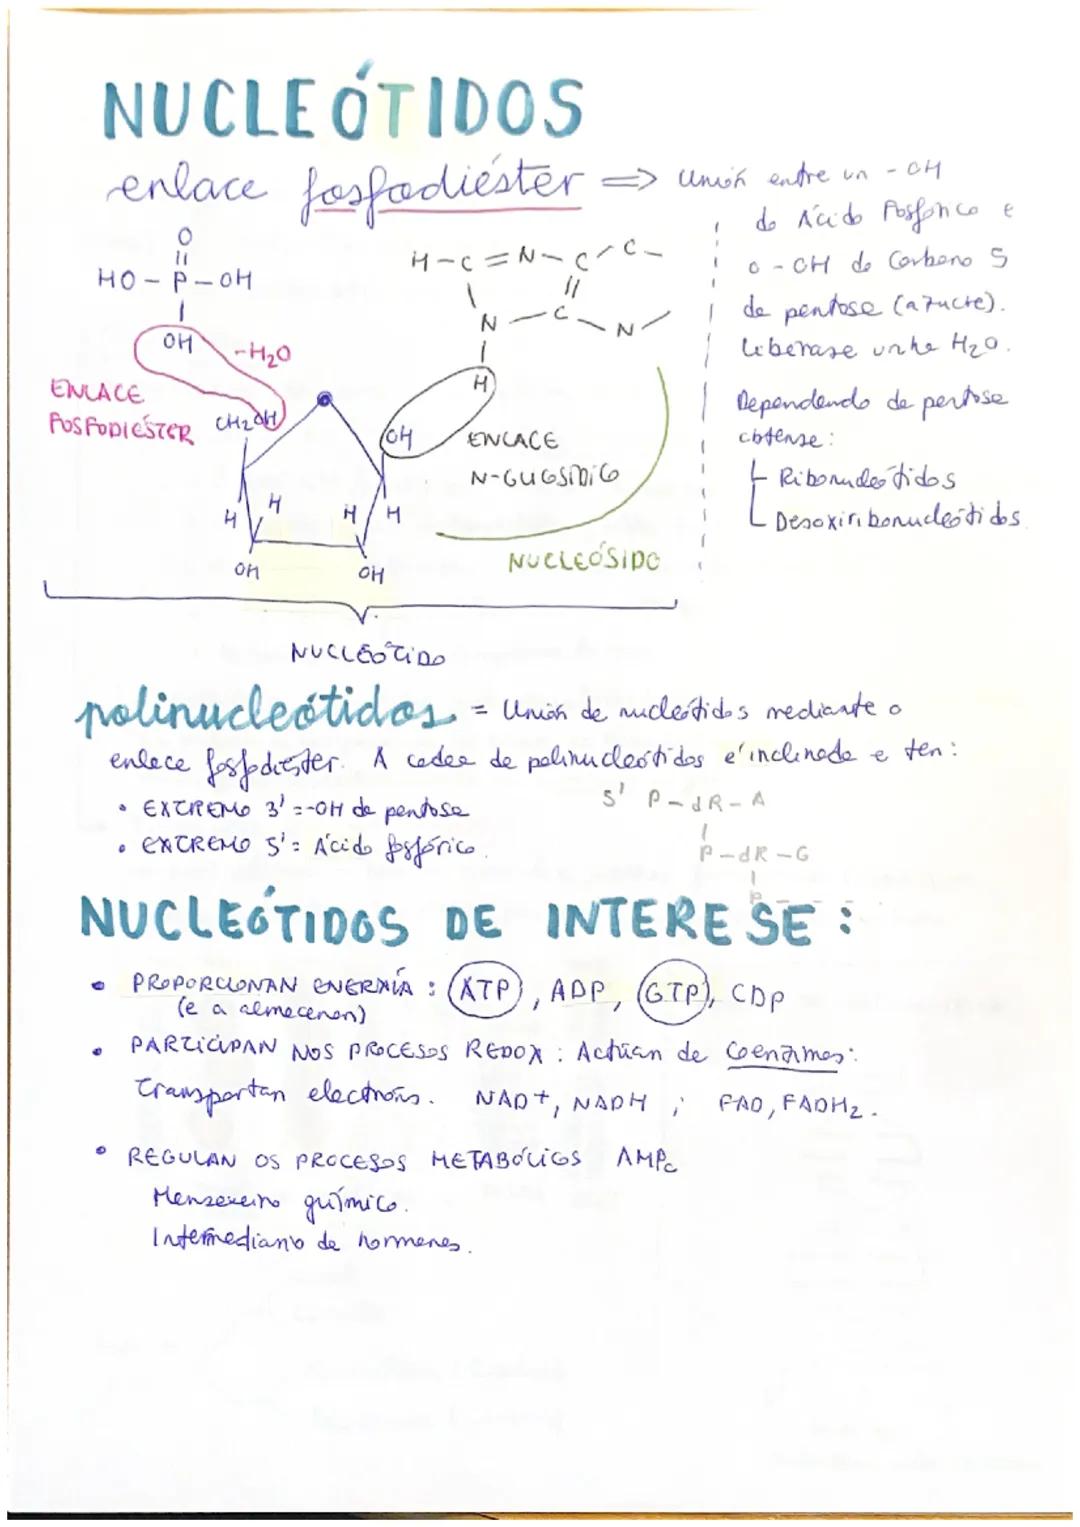 NUCLEÓTIDOS
enlace fosfodiéster => Unión entre un - OH
do Ácido Fosfórico e
o - OH do Carbono 5
da pentosa (azucre).
Libérase unha H2O.
Dependendo da pentosa
obtense:
Ribonucleótidos
Desoxirribonucleótidos
O
HO - P - OH
OH
-H2O
ENLACE
FOSFODIÉSTER
CH2OH
H-C=N-C-C-
N-C-N
H
OH
ENLACE
N-GLICOSÍDICO
H H H H
OH OH
NUCLEÓSIDO
NUCLEÓTIDO
polinucleótidos = Unión de nucleótidos mediante o
enlace fosfodiéster. A cadea de polinucleótidos é inclinada e ten:
• EXTREMO 3' = -OH da pentosa
• EXTREMO 5' = Ácido fosfórico.
5' P-dR-A
P-dR-G
P - - - -
NUCLEÓTIDOS DE INTERESE :
• PROPORCIONAN ENERXÍA : ATP, ADP, GTP, CDP
(e a almacenan)
• PARTICIPAN NOS PROCESOS REDOX : Actúan de Coenzimas:
Transportan electróns. NAD+, NADH ; FAD, FADH2.
• REGULAN OS PROCESOS METABÓLICOS AMPc
Mensaxeiro químico.
Intermediario de hormonas.